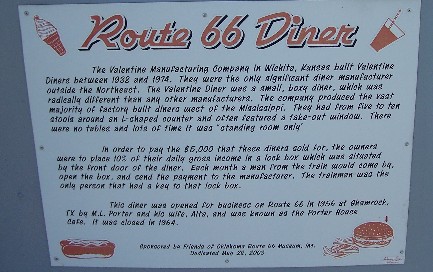 Route 66 Diner
The Valentine Manufacturing Company in Wichita, Kansas built Valentine
Diners between 1938 and 1974. They were the only significant diner manufacturer
outside the Northeast. The Valentine Diner was a small, boxy diner, which was
radically different than any other manufacturers. The company produced the vast
majority of factory built diners west of the Mississippi. They had from five to ten
stools around an L-shaped counter and often featured a take-out window. There
were no tables and lots of time it was "standing room only"
In order to pay the $5,000 that these diners sold for, the owners
were to place 10% of their daily gross income in a lock box which was situated
by the front door of the diner. Each month a man from the train would come by,
open the box, and send the payment to the manufacturer. The trainman was the
only person that had a key to that lock box.
This diner was opened for business on Route 66 in 1956 at Shamrock,
TX by M.L. Porter and his wife, Alta, and was known as the Porter House
Cafe. It was closed in 1964.
Sponsored by Friends of Oklahoma Route 66 Museum, INC.
Dedicated May 28, 2003